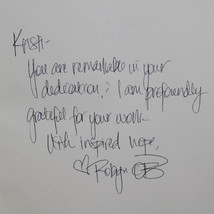 Kristi-
You are remarkable in your
dedication, & I am profoundly
grateful for your work.
With inspired hope,
♡ Robyn OB